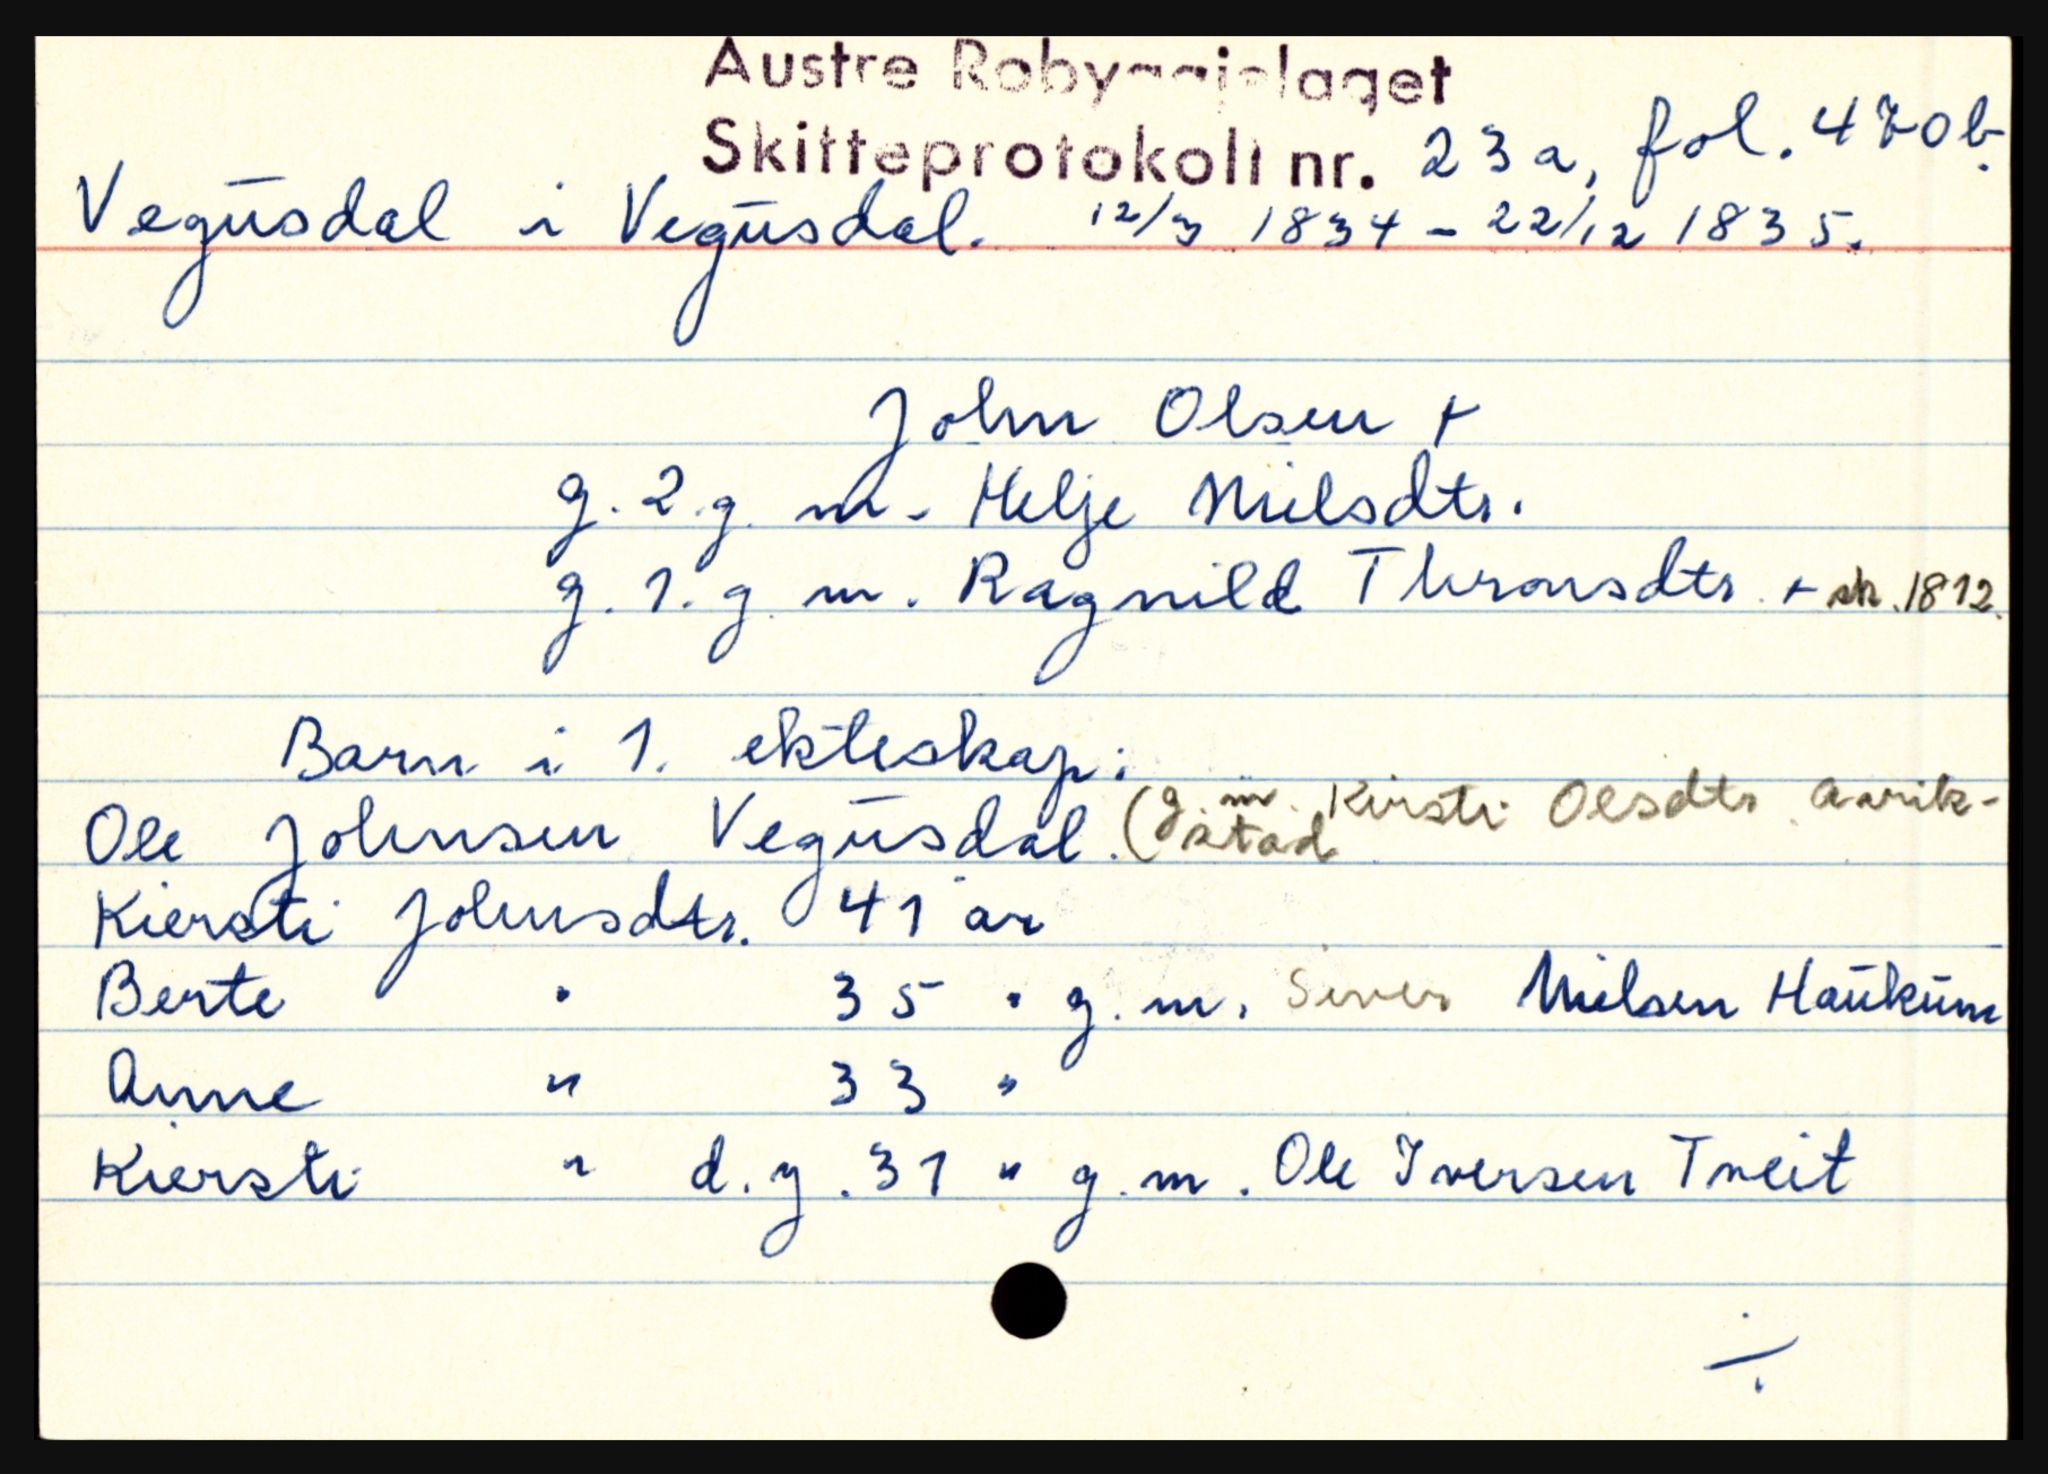 Austre Robyggjelaget
Skifteprotokoll nr. 23a, fol. 470b.
Vegusdal i Vegusdal. 12/3 1834 - 22/12 1835.
John Olsen +
g. 2. g. m. Helje Nielsdtr.
g. 1. g. m. Ragnild Thronsdtr. + sk. 1812.
Barn i 1. ekteskap:
Ole Johnsen Vegusdal. (g. m. Kirsti Olsdtr.
stad
Kiersti Johnsdtr. 41 år
Berte " 35 " g. m. Siver Nielsen Haukum
Anne " 33 "
Kiersti " d. y. 31 " g. m. Ole Iversen Tveit
./.